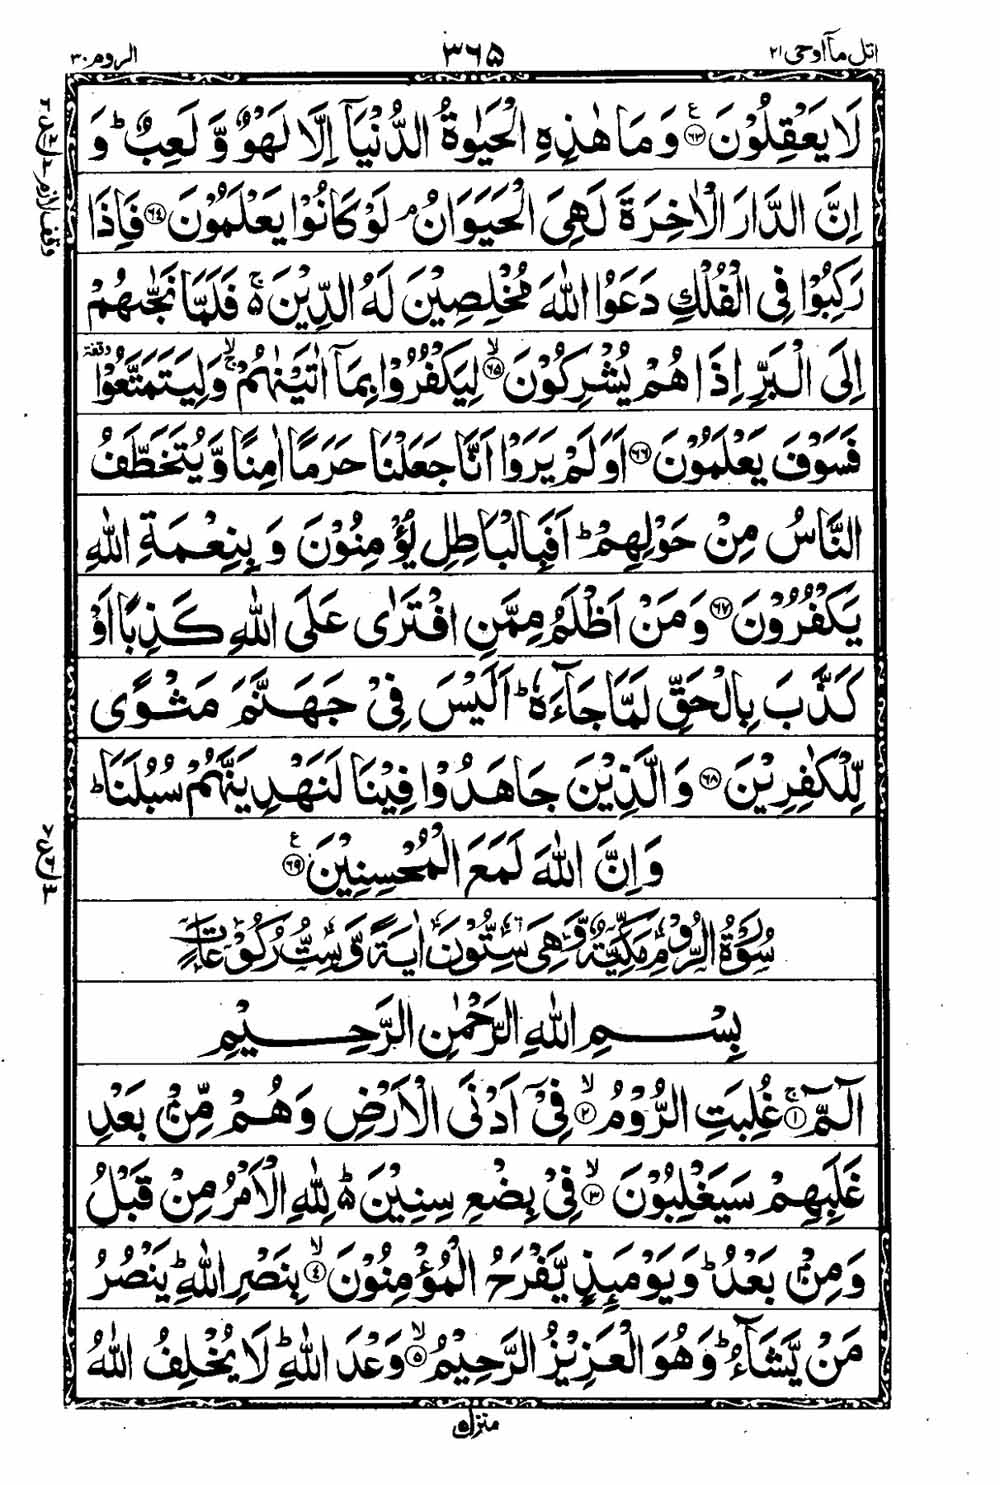 اتل مآ اوحی ۲۱
۳۶۵
الروم ۳۰
لَا يَعْقِلُوْنَ ۶۳ؑ وَمَا هٰذِهِ الْحَيٰوةُ الدُّنْيَآ اِلَّا لَهْوٌ وَّ لَعِبٌ ؕ وَ
اِنَّ الدَّارَ الْاٰخِرَةَ لَهِيَ الْحَيَوَانُ ۘ لَوْ كَانُوْا يَعْلَمُوْنَ ۶۴ فَاِذَا
رَكِبُوْا فِي الْفُلْكِ دَعَوُا اللّٰهَ مُخْلِصِيْنَ لَهُ الدِّيْنَ ۚ۬ فَلَمَّا نَجّٰىهُمْ
اِلَى الْبَرِّ اِذَا هُمْ يُشْرِكُوْنَ ۶۵ۙ لِيَكْفُرُوْا بِمَآ اٰتَيْنٰهُمْ ۚۙ وَلِيَتَمَتَّعُوْا وقفة
فَسَوْفَ يَعْلَمُوْنَ ۶۶ اَوَلَمْ يَرَوْا اَنَّا جَعَلْنَا حَرَمًا اٰمِنًا وَّيُتَخَطَّفُ
النَّاسُ مِنْ حَوْلِهِمْ ؕ اَفَبِالْبَاطِلِ يُؤْمِنُوْنَ وَ بِنِعْمَةِ اللّٰهِ
يَكْفُرُوْنَ ۶۷ وَمَنْ اَظْلَمُ مِمَّنِ افْتَرٰى عَلَى اللّٰهِ كَذِبًا اَوْ
كَذَّبَ بِالْحَقِّ لَمَّا جَآءَهٗ ؕ اَلَيْسَ فِيْ جَهَنَّمَ مَثْوًى
لِّلْكٰفِرِيْنَ ۶۸ وَالَّذِيْنَ جَاهَدُوْا فِيْنَا لَنَهْدِيَنَّهُمْ سُبُلَنَا ؕ
وَاِنَّ اللّٰهَ لَمَعَ الْمُحْسِنِيْنَ ۶۹ؑ
سُوْرَةُ الرُّوْمِ مَكِّيَّةٌ وَّهِيَ سِتُّوْنَ اٰيَةً وَّ سِتُّ رُكُوْعَاتٍ
بِسْمِ اللّٰهِ الرَّحْمٰنِ الرَّحِيْمِ
الٓمّٓ ۱ۚ غُلِبَتِ الرُّوْمُ ۲ۙ فِيْٓ اَدْنَى الْاَرْضِ وَهُمْ مِّنْۢ بَعْدِ
غَلَبِهِمْ سَيَغْلِبُوْنَ ۳ۙ فِيْ بِضْعِ سِنِيْنَ ؕ۬ لِلّٰهِ الْاَمْرُ مِنْ قَبْلُ
وَمِنْۢ بَعْدُ ؕ وَيَوْمَئِذٍ يَّفْرَحُ الْمُؤْمِنُوْنَ ۴ۙ بِنَصْرِ اللّٰهِ ؕ يَنْصُرُ
مَنْ يَّشَآءُ ؕ وَهُوَ الْعَزِيْزُ الرَّحِيْمُ ۵ۙ وَعْدَ اللّٰهِ ؕ لَا يُخْلِفُ اللّٰهُ
وقف لازم
منزل ۵